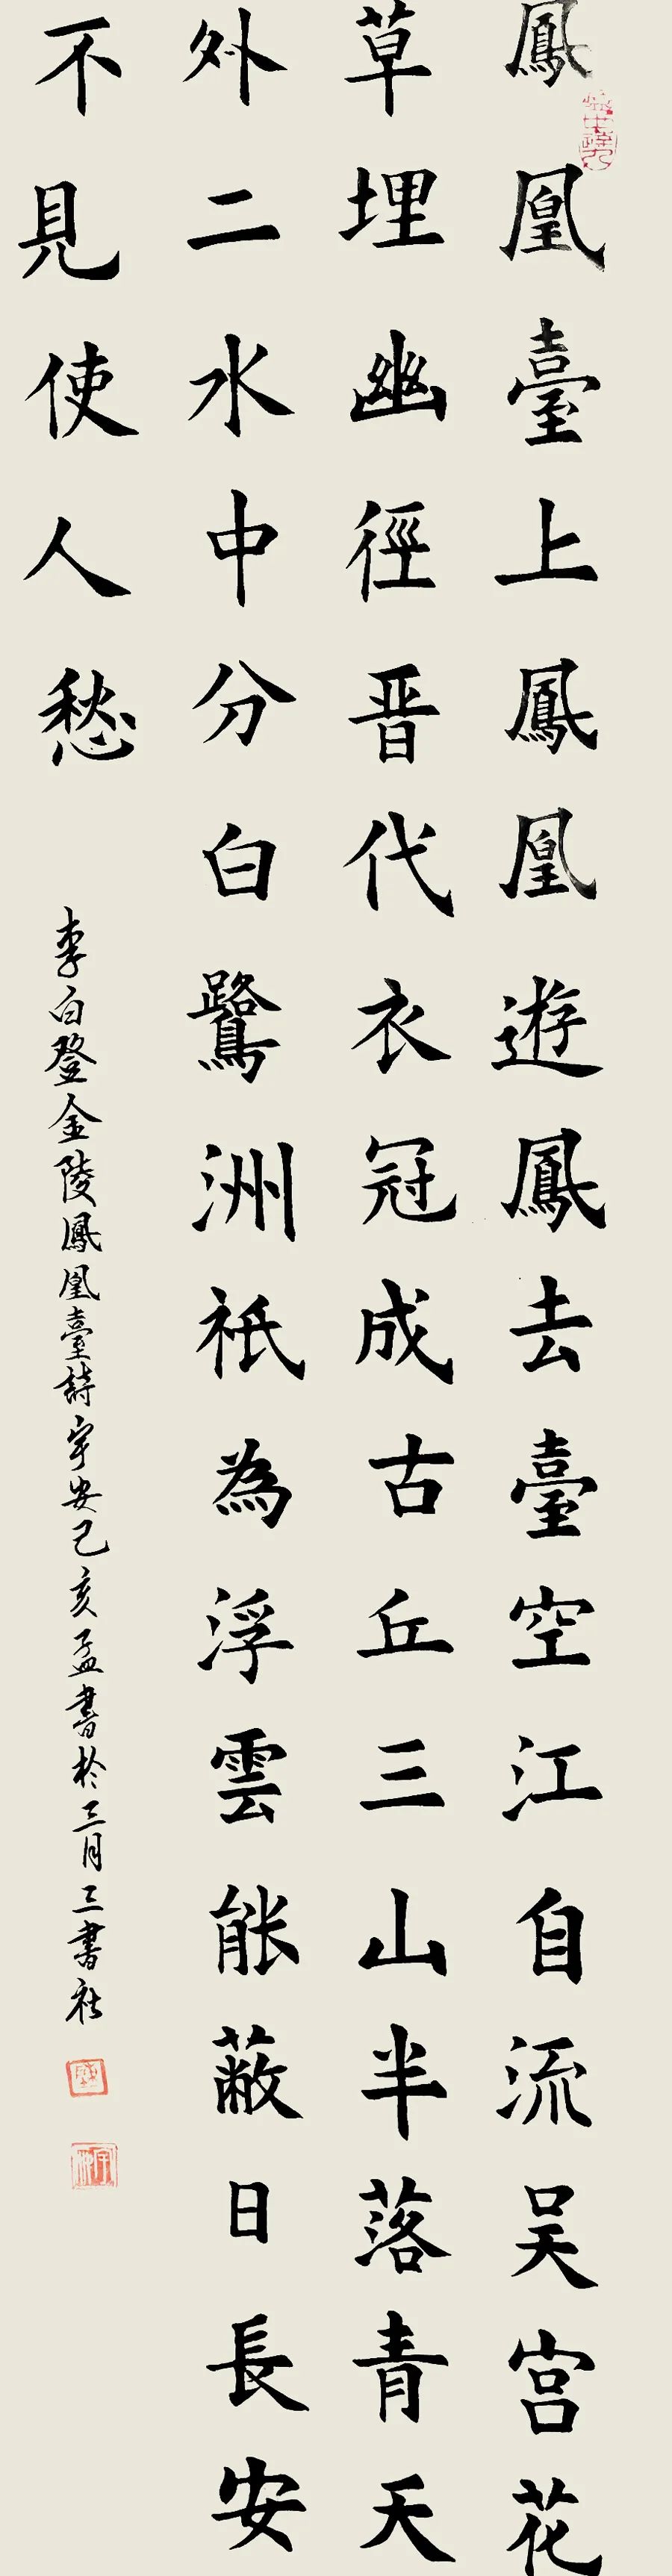 鳳凰臺上鳳凰遊鳳去臺空江自流吴宫花
草埋幽徑晋代衣冠成古丘三山半落青天
外二水中分白鷺洲祇為浮雲能蔽日長安
不見使人愁
李白登金陵鳳凰臺詩宇安己亥孟書於三月三書社